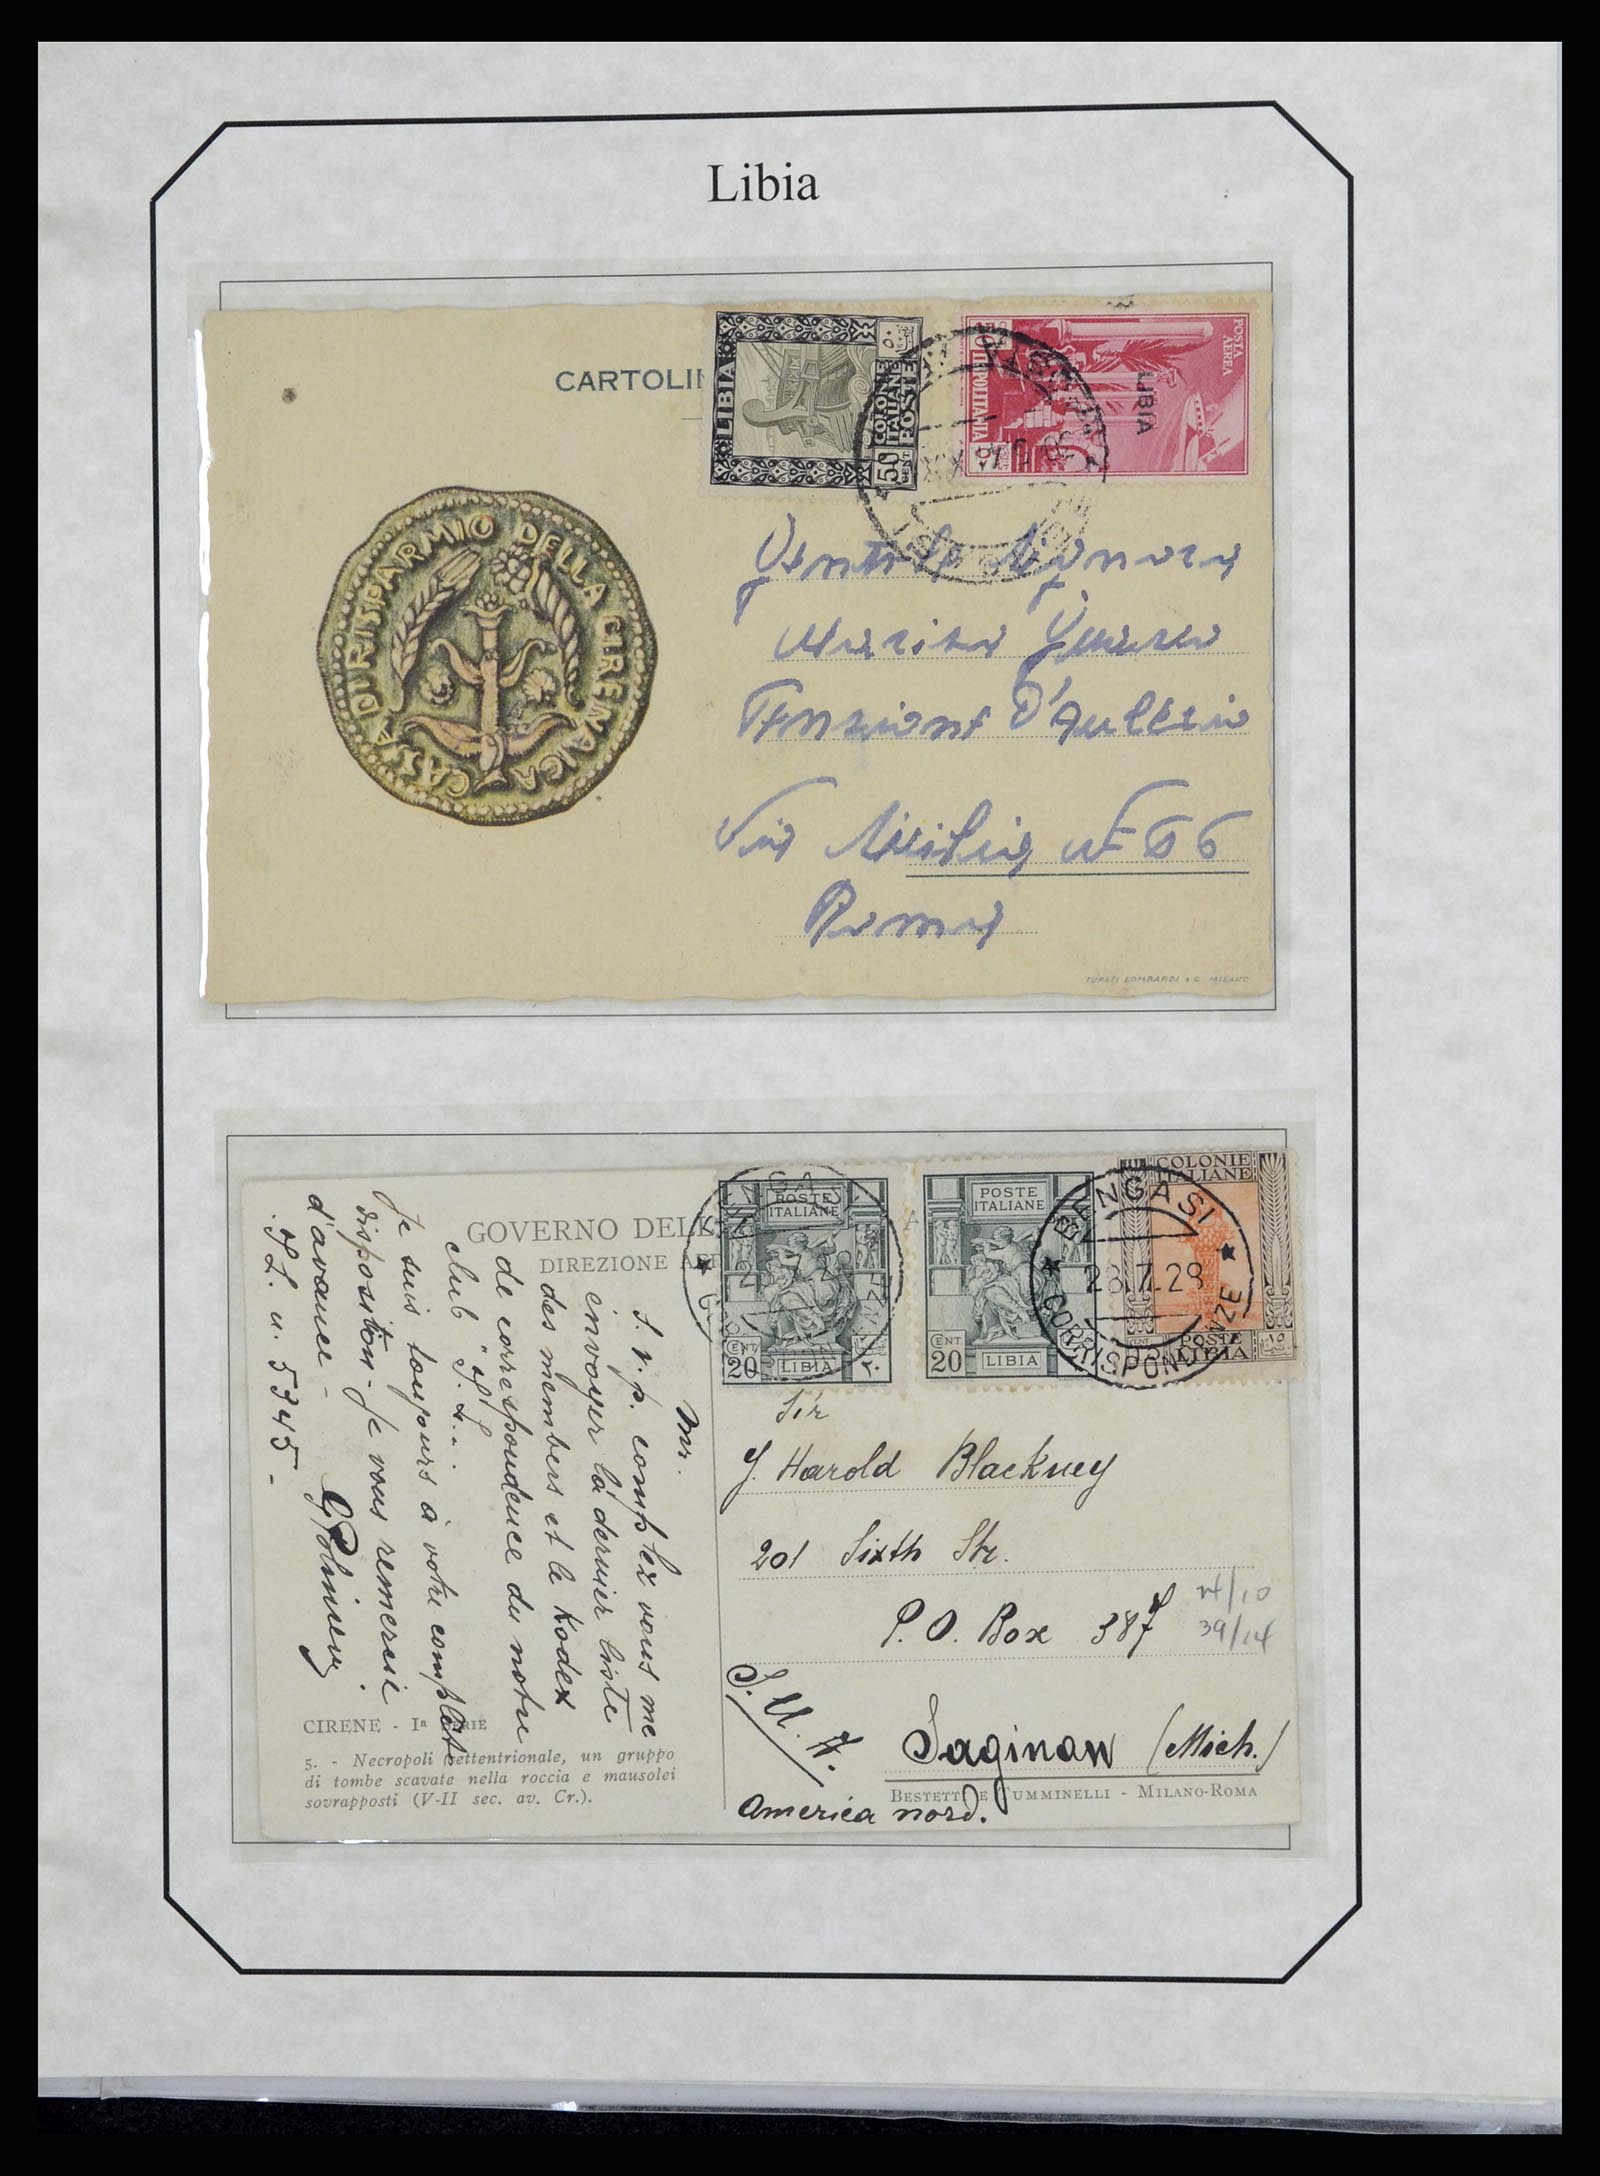 Libia
CARTOLIN
LIBIA
50
CENT
COLONIE
ITALIANE
POSTE
POSTA
AEREA
LIBIA
TRIPOLITANIA
CASSA DI RISPARMIO DELLA CIRENAICA
Gentile Signora
Pensione D'Aulerio
Via Sicilia N° 66
Roma
TURATI LOMBARDI & C. MILANO
GOVERNO DELL
DIREZIONE A
A
POSTE
ITALIANE
CENT
20
LIBIA
٢٠
POSTE
ITALIANE
CENT
20
LIBIA
COLONIE
ITALIANE
POSTE
LIBIA
١٥
BENGASI
28.7.28
CORRISPONDENZE
Mr.
S. v. p. complez vous me
envoyer la dernier liste
des members et le Kodex
de correspondence du notre
club
Je suis toujours à votre complete
disposition - Je vous remercie
d'avance -
u. 5345 -
CIRENE - Iª SERIE
5. - Necropoli settentrionale, un gruppo
di tombe scavate nella roccia e mausolei
sovrapposti (V-II sec. av. Cr.).
Sir
J. Harold Blackney
201 Sixth Str.
P. O. Box 387
24/10
39/14
S. U. A.
Saginaw (Mich.)
America nord.
BESTETTI E TUMMINELLI - MILANO-ROMA